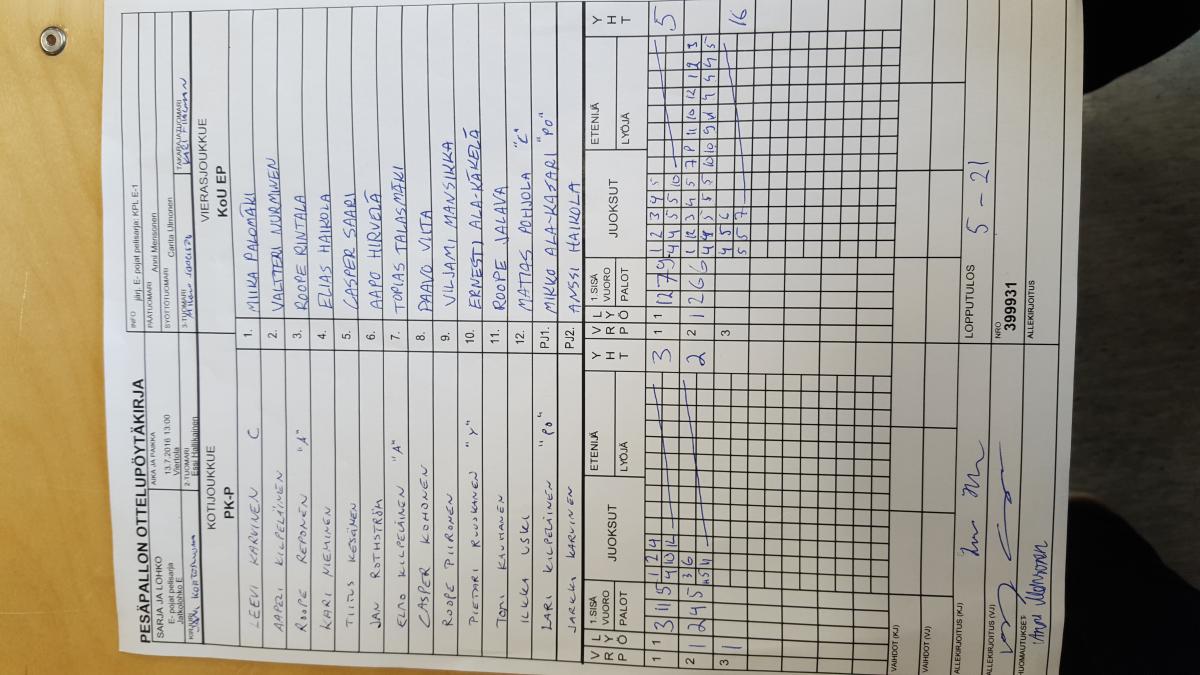 PESÄPALLON OTTELUPÖYTÄKIRJA
SARJA JA LOHKO
E- pojat pelisarja
Jakolohko E
AIKA JA PAIKKA
13.7.2016 13:00
Viertola
INFO jlrj. E- pojat pelisarja: KPL E-1
PÄÄTUOMARI Anni Mensonen
SYÖTTÖTUOMARI Carita Ulmonen
KIRJURI
2-TUOMARI
Essi Hallikainen
3-TUOMARI
TAKARAJATUOMARI
KOTIJOUKKUE
PK-P
VIERASJOUKKUE
KoU EP
LEEVI KARVINEN C 1. MIIKA PALOMÄKI
AAPELI KILPELÄINEN 2. VALTTERI NURMINEN
ROOPE REPONEN "A" 3. ROOPE RINTALA
KARI NIEMINEN 4. ELIAS HAIKOLA
TIITUS KESÄNEN 5. CASPER SAARI
JAN ROTHSTRÖM 6. AAPO HIRVELÄ
ELMO KILPELÄINEN "A" 7. TOPIAS TALASMÄKI
CASPER KOHONEN 8. PAAVO VIITA
ROOPE PIIRONEN 9. VILJAMI MANSIKKA
PIETARI RUOKANEN "Y" 10. ERNESTI ALA-KÄKELÄ
TOMI KAUHANEN 11. ROOPE JALAVA
ILKKA USKI 12. MATIAS POHJOLA "C"
LARI KILPELÄINEN "PO" PJ1. MIKKO ALA-KATARI "PO"
JARKKI KARVINEN PJ2. ANSSI HAIKOLA
V R L Y P Ö 1.SISÄ VUORO PALOT JUOKSUT ETENIJÄ LYÖJÄ Y H T V R L Y P Ö 1.SISÄ VUORO PALOT JUOKSUT ETENIJÄ LYÖJÄ Y H T
1 1 3 11 5 1 2 4 3 1 1 12 7 9 1 2 3 4 5 5
4 10 12 4 4 5 5 10
2 1 2 4 5 3 6 2 2 1 2 6 6 1 12 3 4 5 7 9 11 10 12 1 2 3 16
3 1 3 4 5 6
5 5 7
VAIHDOT (KJ)
VAIHDOT (VJ)
ALLEKIRJOITUS (KJ)
LOPPUTULOS 5 - 21
ALLEKIRJOITUS (VJ)
NRO
399931
HUOMAUTUKSET
Anni Mensonen
ALLEKIRJOITUS